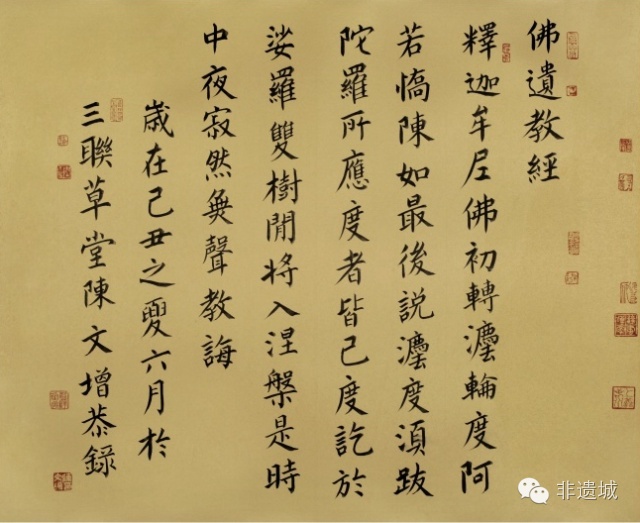 佛遺教經
釋迦牟尼佛初轉灋輪度阿
若憍陳如最後説灋度須跋
陀羅所應度者皆已度訖於
娑羅雙樹閒將入涅槃是時
中夜寂然無聲教誨
歲在己丑之夏六月於
三聯草堂陳文增恭錄
非遗城